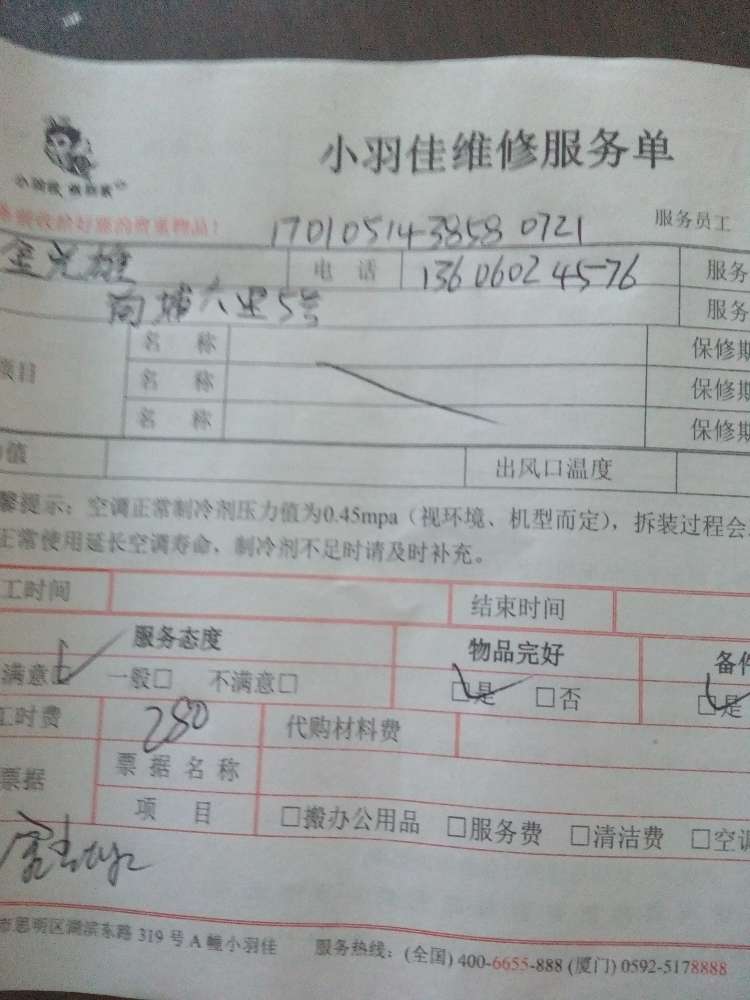 小羽佳维修服务单
17010514-3858 0721 服务员工
电 话 13606024576 服务
5号 服务
名 称 保修期
项目 名 称 保修期
名 称 保修期
值 出风口温度
馨提示：空调正常制冷剂压力值为0.45mpa（视环境、机型而定），拆装过程会
正常使用延长空调寿命，制冷剂不足时请及时补充。
工时间 结束时间
服务态度 物品完好 备件
满意□ 一般□ 不满意□ □是 □否 □是
工时费 280 代购材料费
票据 票 据 名 称
项 目 □搬办公用品 □服务费 □清洁费 □空调
市思明区湖滨东路 319 号 A 幢小羽佳 服务热线：(全国) 400-6655-888 (厦门) 0592-5178888